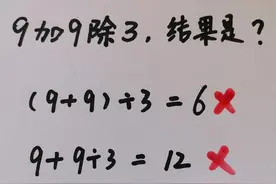 9加9除3，结果是？
(9+9)÷3=6 ✗
9+9÷3=12 ✗